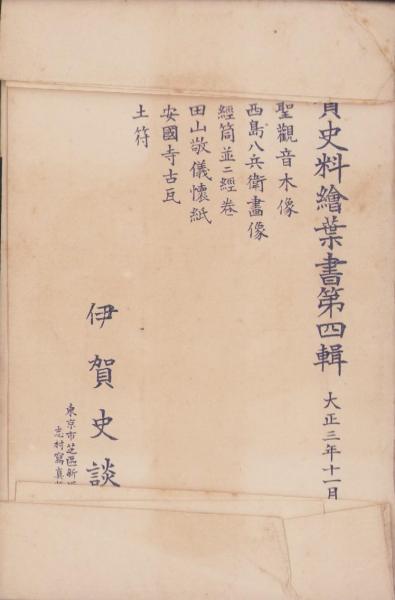 賀史料繪葉書第四輯 大正三年十一月
聖觀音木像
西島八兵衛畫像
經筒並ニ經卷
田山敬儀懷紙
安國寺古瓦
土符
伊賀史談
東京市芝區新
志村寫眞